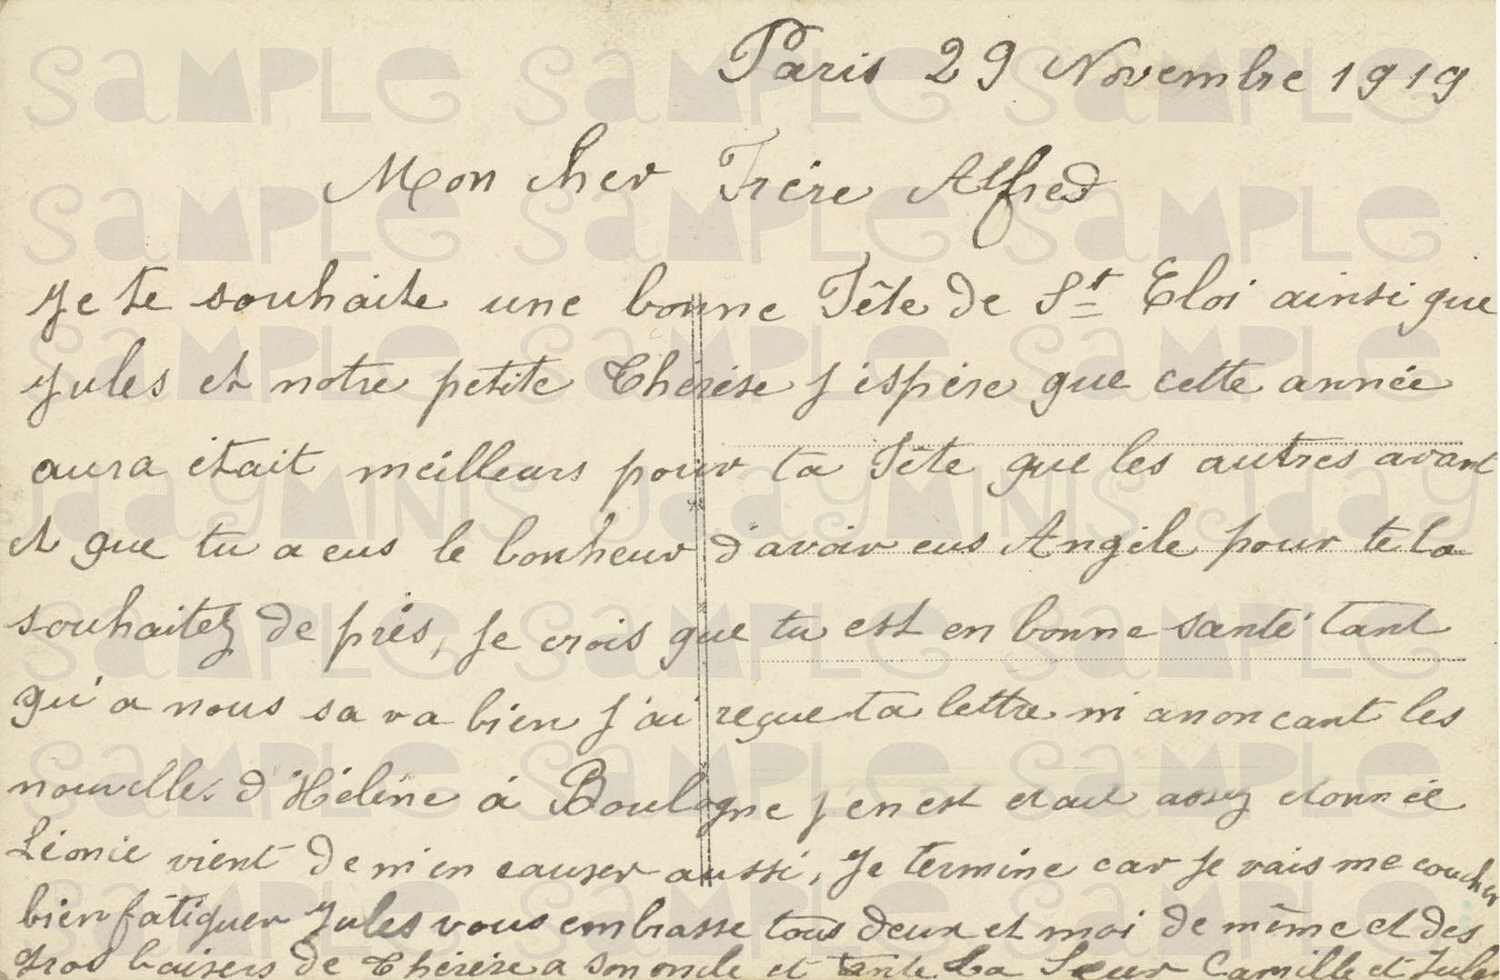 Paris 29 Novembre 1919
Mon cher Frère Alfred
Je te souhaite une bonne Fête de St Eloi ainsi que
Jules et notre petite Thérèse j'espère que cette année
aura était meilleurs pour ta Fête que les autres avant
et que tu a eus le bonheur d'avoir eus Angèle pour te la
souhaitez de près, je crois que tu est en bonne santé tant
qu'a nous sa va bien j'ai reçue ta lettre m'anonçant les
nouvelles d'Hélène à Boulogne j'en est etait assez etonnée
Léonie vient de m'en causer aussi, Je termine car je vais me coucher
bien fatiguer Jules vous embrasse tous deux et moi de même et des
gros baisers de Thérèse a son oncle et tante La Seur Camille et Jules
SAMPLE SAMPLE SAMPLE
SAMPLE SAMPLE SAMPLE
SAMPLE SAMPLE SAMPLE
JaayMINIS Jaay
SAMPLE SAMPLE SAMPLE
SAMPLE SAMPLE SAMPLE
SAMPLE SAMPLE SAMPLE